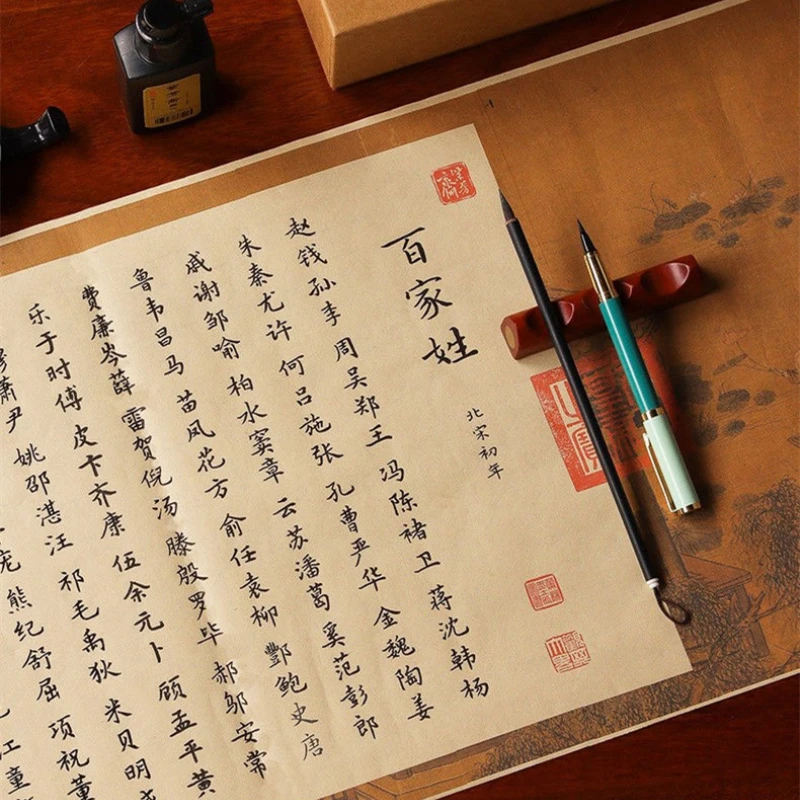 百家姓
北宋初年
赵钱孙李 周吴郑王 冯陈褚卫 蒋沈韩杨
朱秦尤许 何吕施张 孔曹严华 金魏陶姜
戚谢邹喻 柏水窦章 云苏潘葛 奚范彭郎
鲁韦昌马 苗凤花方 俞任袁柳 酆鲍史唐
费廉岑薛 雷贺倪汤 滕殷罗毕 郝邬安常
乐于时傅 皮卞齐康 伍余元卜 顾孟平黄
萧尹 姚邵湛汪 祁毛禹狄 米贝明
庞 熊纪舒屈 项祝董
江童